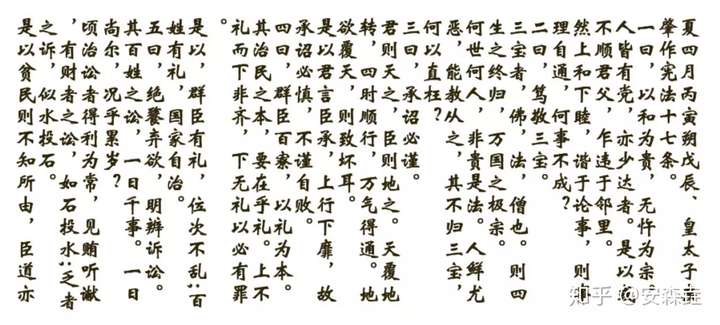 夏四月丙寅朔戊辰、皇太子
肇作宪法十七条。
一曰，以和为贵，无忤为宗。
人皆有党，亦少达者。是以
不顺君父，乍违于邻里。
然上和下睦，谐于论事，则
理自通，何事不成？
二曰，笃敬三宝。
三宝者，佛，法，僧也。则四
生之终归，万国之极宗。
何世何人，非贵是法。人鲜尤
恶，能教从之，其不归三宝，
何以直枉？
三曰，承诏必谨。
君则天之，臣则地之。天覆地
转，四时顺行，万气得通。地
欲覆天，则致坏耳。
是以君言臣承，上行下靡，故
承诏必慎，不谨自败。
四曰，群臣百寮，以礼为本。
其治民之本，要在乎礼。上不
礼而下非齐，下无礼以必有罪
。
是以，群臣有礼，位次不乱；百
姓有礼，国家自治。
五曰，绝餮弃欲，明辨诉讼。
其百姓之讼，一日千事。一日
尚尔，况乎累岁？
顷治讼者得利为常，见贿听谳
，有财者之讼，如石投水；乏者
之诉，似水投石。
是以贫民则不知所由，臣道亦
知乎 @安森垚